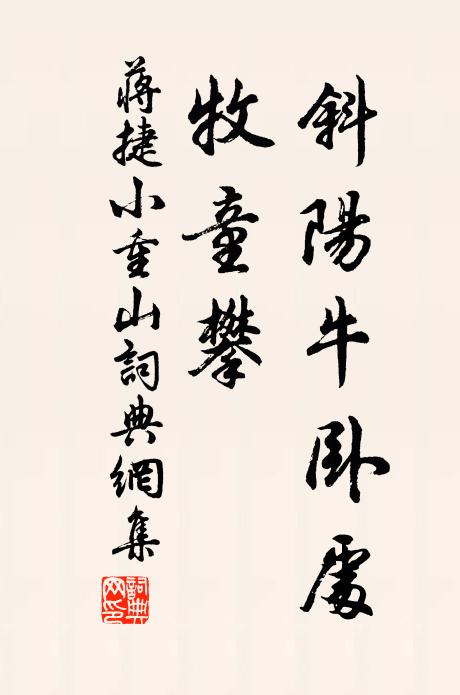 斜陽牛臥處
牧童攀
蔣捷小重山詞典網集
詞典网印